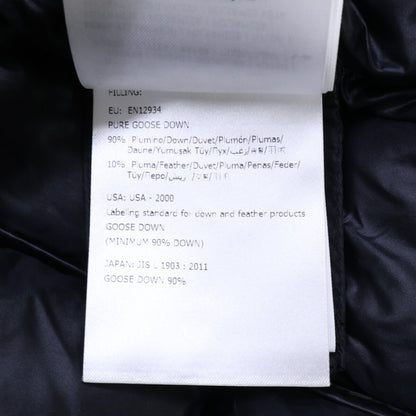 FILLING:
EU: EN12934
PURE GOOSE DOWN
90% Piumino/Down/Duvet/Plumón/Plumas/
Daune/Yumuşak Tüy/Пух/زغب/
10% Piuma/Feather/Duvet/Pluma/Penas/Feder/
Tüy/Перо/ريش/
USA: USA - 2000
Labeling standard for down and feather products
GOOSE DOWN
(MINIMUM 90% DOWN)
JAPAN: JIS L 1903 : 2011
GOOSE DOWN 90%